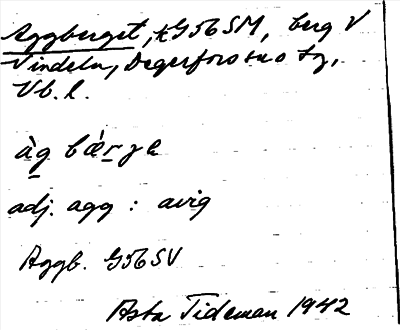 Aggberget, t G56 SM, berg V
Vindeln, Degerfors sn o tg,
Vb. l.
àg bǽrge
adj. agg : avig
Aggb. G56 SV
Asta Tideman 1942